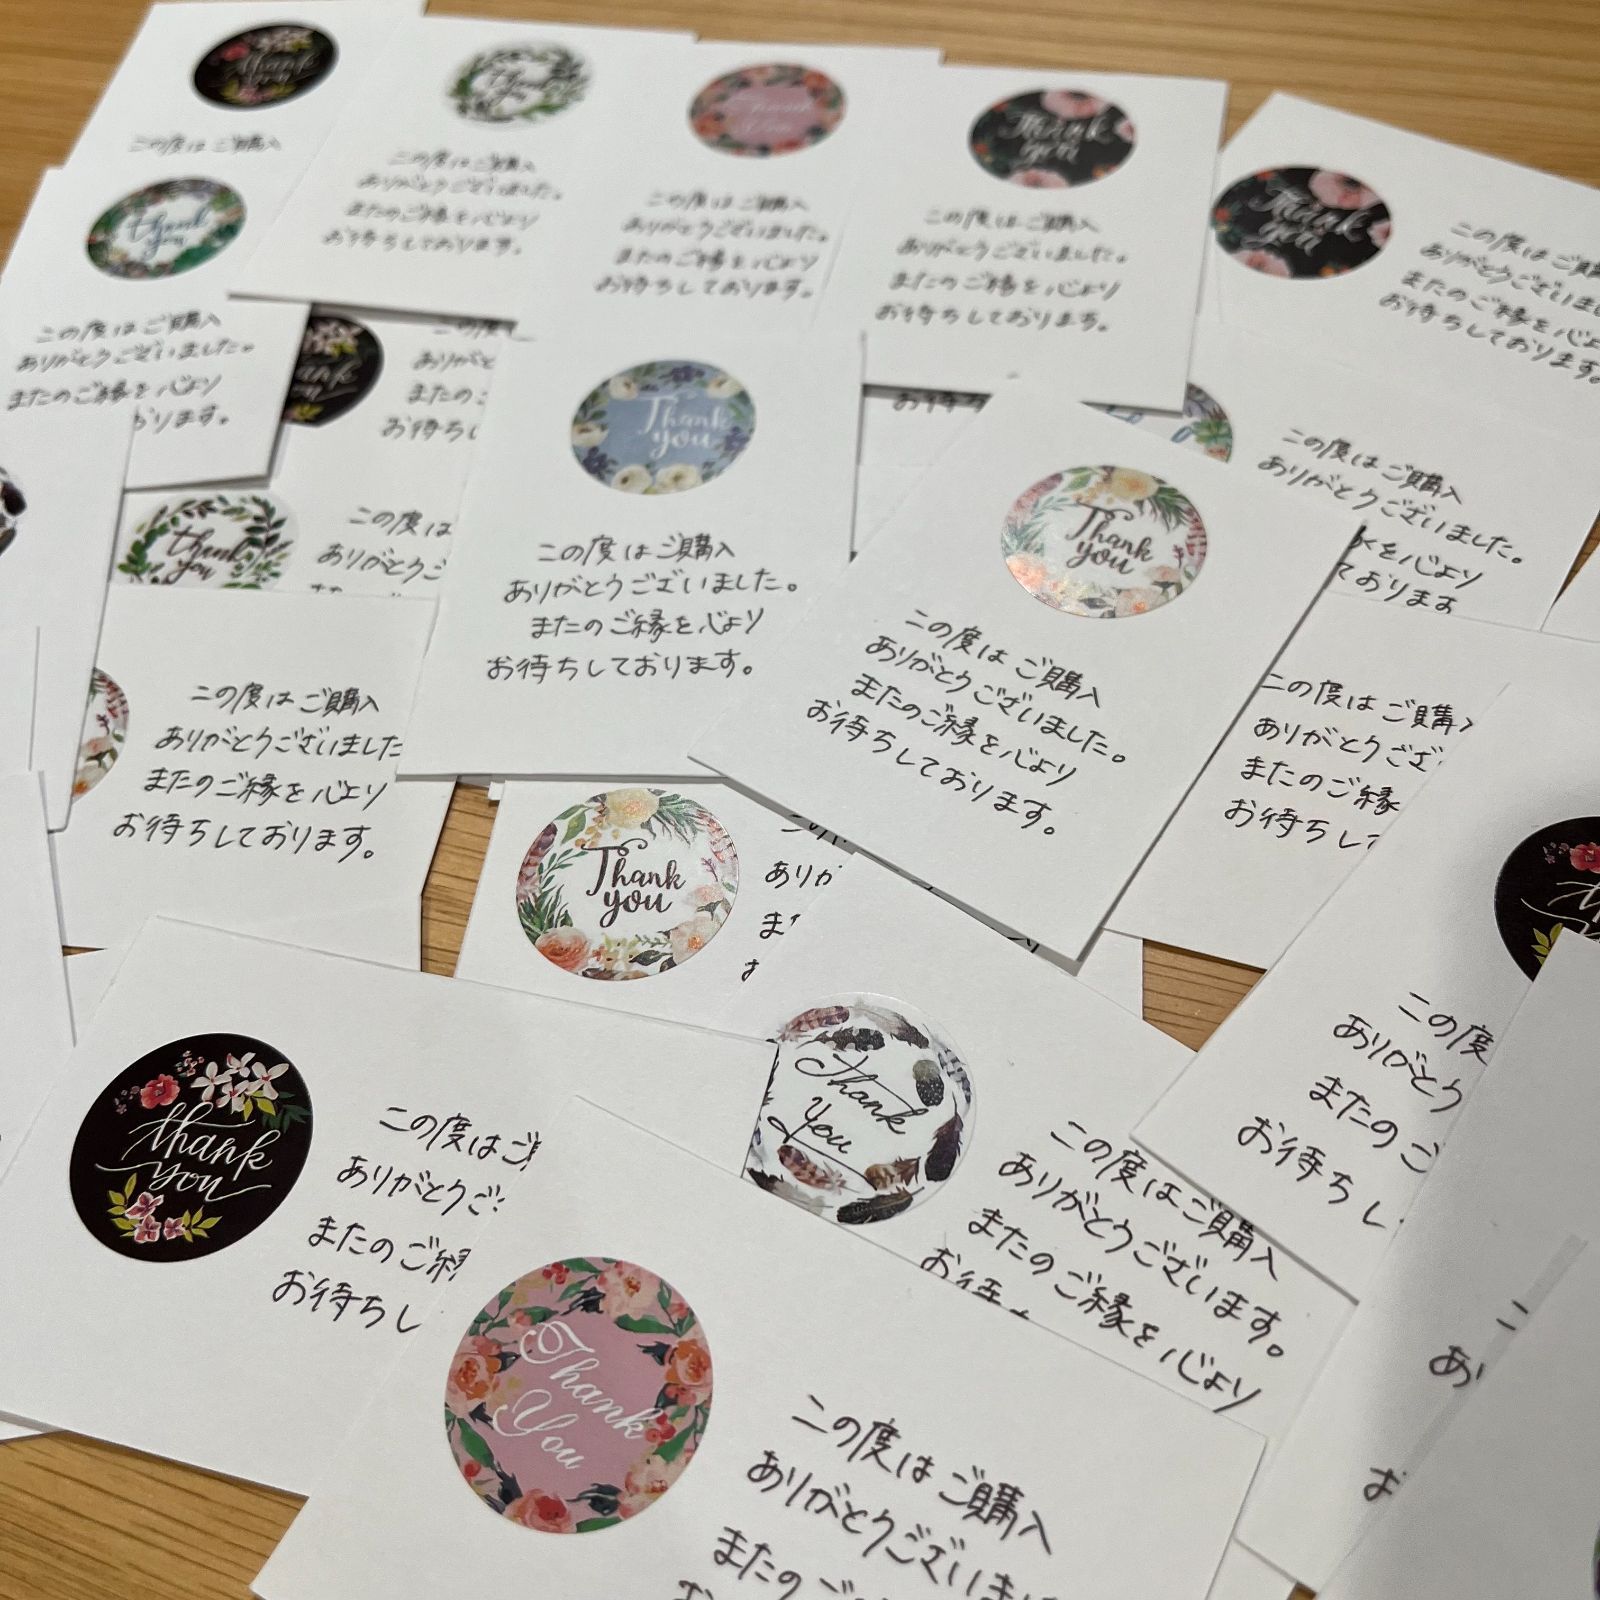 thank you
この度は ご購入
Thank you
この度は ご購入
ありがとうございました。
またのご縁を心より
お待ちしております。
Thank You
この度は ご購入
ありがとうございました。
またのご縁を心より
お待ちしております。
Thank you
この度は ご購入
ありがとうございました。
またのご縁を心より
お待ちしております。
Thank you
この度は ご購
ありがとうございまし
またのご縁を心よ
お待ちしております。
thank you
この度は ご購入
ありがとうございました。
またのご縁を心より
おります。
ありがと
またのご
お待ちし
お待ち
Thank
you
この度は ご購入
ありがとうございました。
またのご縁を心より
お待ちしております。
Thank
you
この度は ご購入
ありがとうございました。
またのご縁を心より
お待ちしております。
この度は ご購入
ありがとうございました。
を心より
ております
thank
you
この度は
ありがとうご
この度は ご購入
ありがとうございました
またのご縁を心より
お待ちしております。
この度は ご購
ありがとうござ
またのご縁
お待ちして
Thank
you
ありが
ま
thank
you
この度はご
ありがとうご
またのご縁
お待ちし
Thank
You
この度はご購入
ありがとうございます。
またのご縁を心より
お待
この度
ありがとう
またのご
お待ちし
Thank
You
この度は ご購入
ありがとうございま
またのご
あり
お